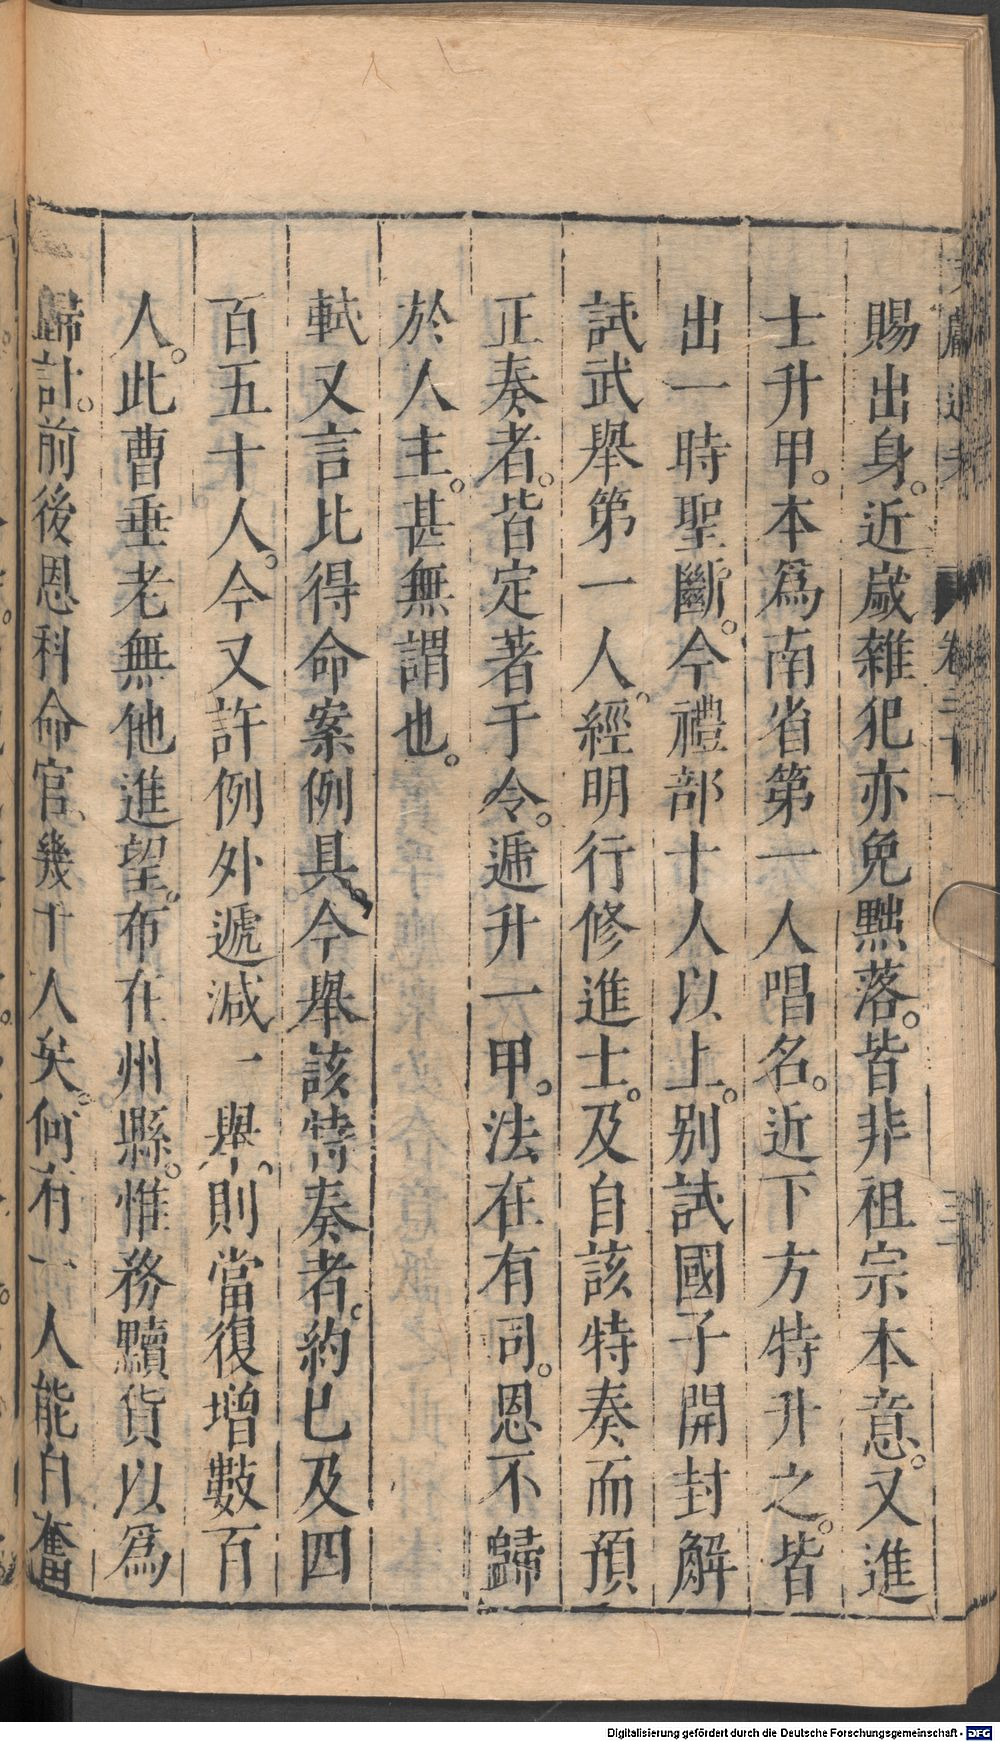 賜出身。近歲雜犯亦免黜落。皆非祖宗本意。又進
士升甲。本爲南省第一人唱名。近下方特升之。皆
出一時聖斷。今禮部十人以上。別試國子開封解
試武舉第一人。經明行修進士。及自該特奏而預
正奏者。皆定著于令。遞升一甲。法在有司。恩不歸
於人主。甚無謂也。
軾又言比得命案例具。今舉該特奏者。約已及四
百五十人。今又許例外遞減一舉。則當復增數百
人。此曹垂老無他進望。布在州縣。惟務黷貨以爲
歸計。前後恩科命官、幾十人矣。何有一人能自奮
卷三十一
Digitalisierung gefördert durch die Deutsche Forschungsgemeinschaft - DFG